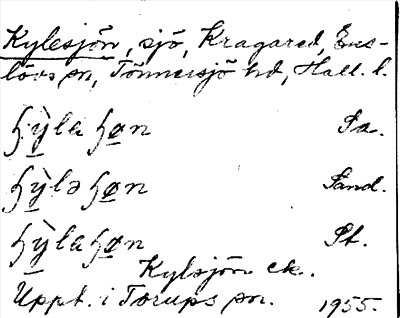 Kylesjön, sjö, Kragared, Ens-
lövs sn, Tönnersjö hd, Hall. l.
ɧỳ̠la ɧø̠n Sa.
ɧỳ̠lə ɧø̠n Sand.
ɧỳ̠la ɧø̠n St.
Kylsjön ek.
Uppt. i Torups sn. 1955.